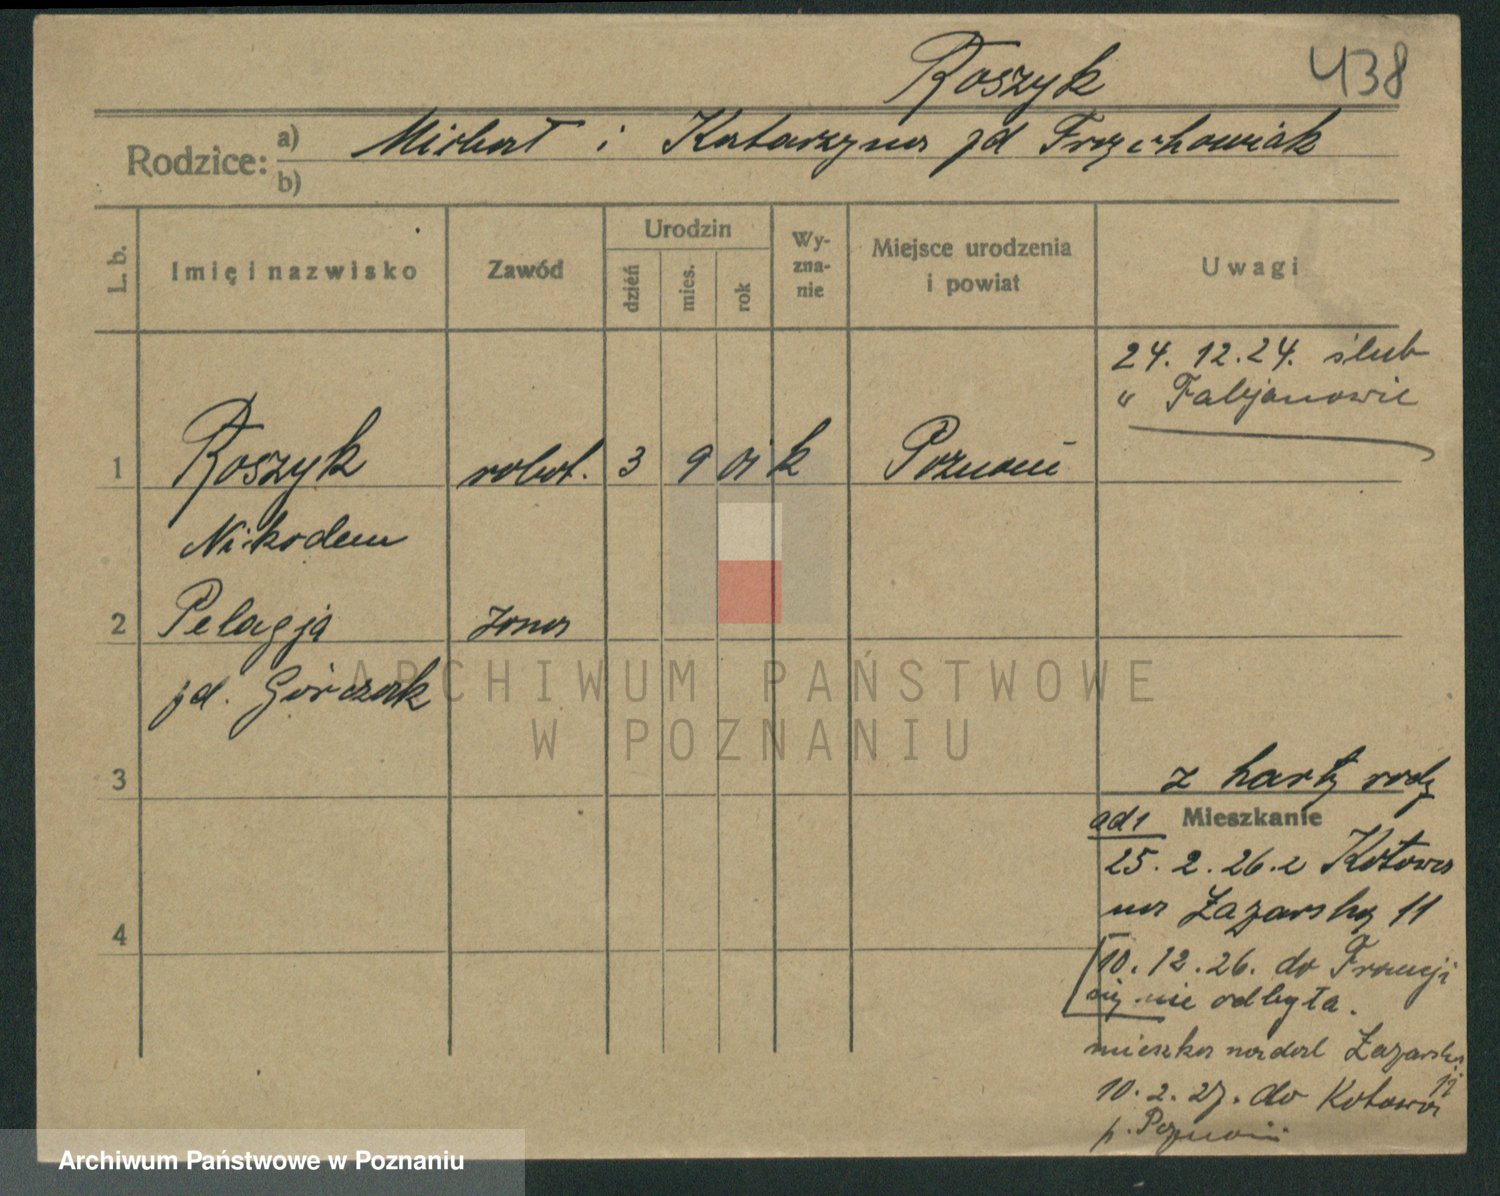 Roszyk 438
Rodzice: a) Michał i Katarzyna zd Trzechowiak
b)
L. b. Imię i nazwisko Zawód Urodzin dzień mies. rok Wy-zna-nie Miejsce urodzenia i powiat Uwagi
24. 12. 24. ślub
w Fabjanowie
1 Roszyk robot. 3 9 01 k Poznań
Nikodem
2 Pelagja żona
zd. Górczak
3 z karty rodz
ad 1 Mieszkanie
25. 2. 26. z Kotowa
na Łazarską 11
4
10. 12. 26. do Francji
się nie odbyła.
mieszka nadal Łazarska 11
10. 2. 27. do Kotowa
p. Poznań
ARCHIWUM PAŃSTWOWE
W POZNANIU
Archiwum Państwowe w Poznaniu